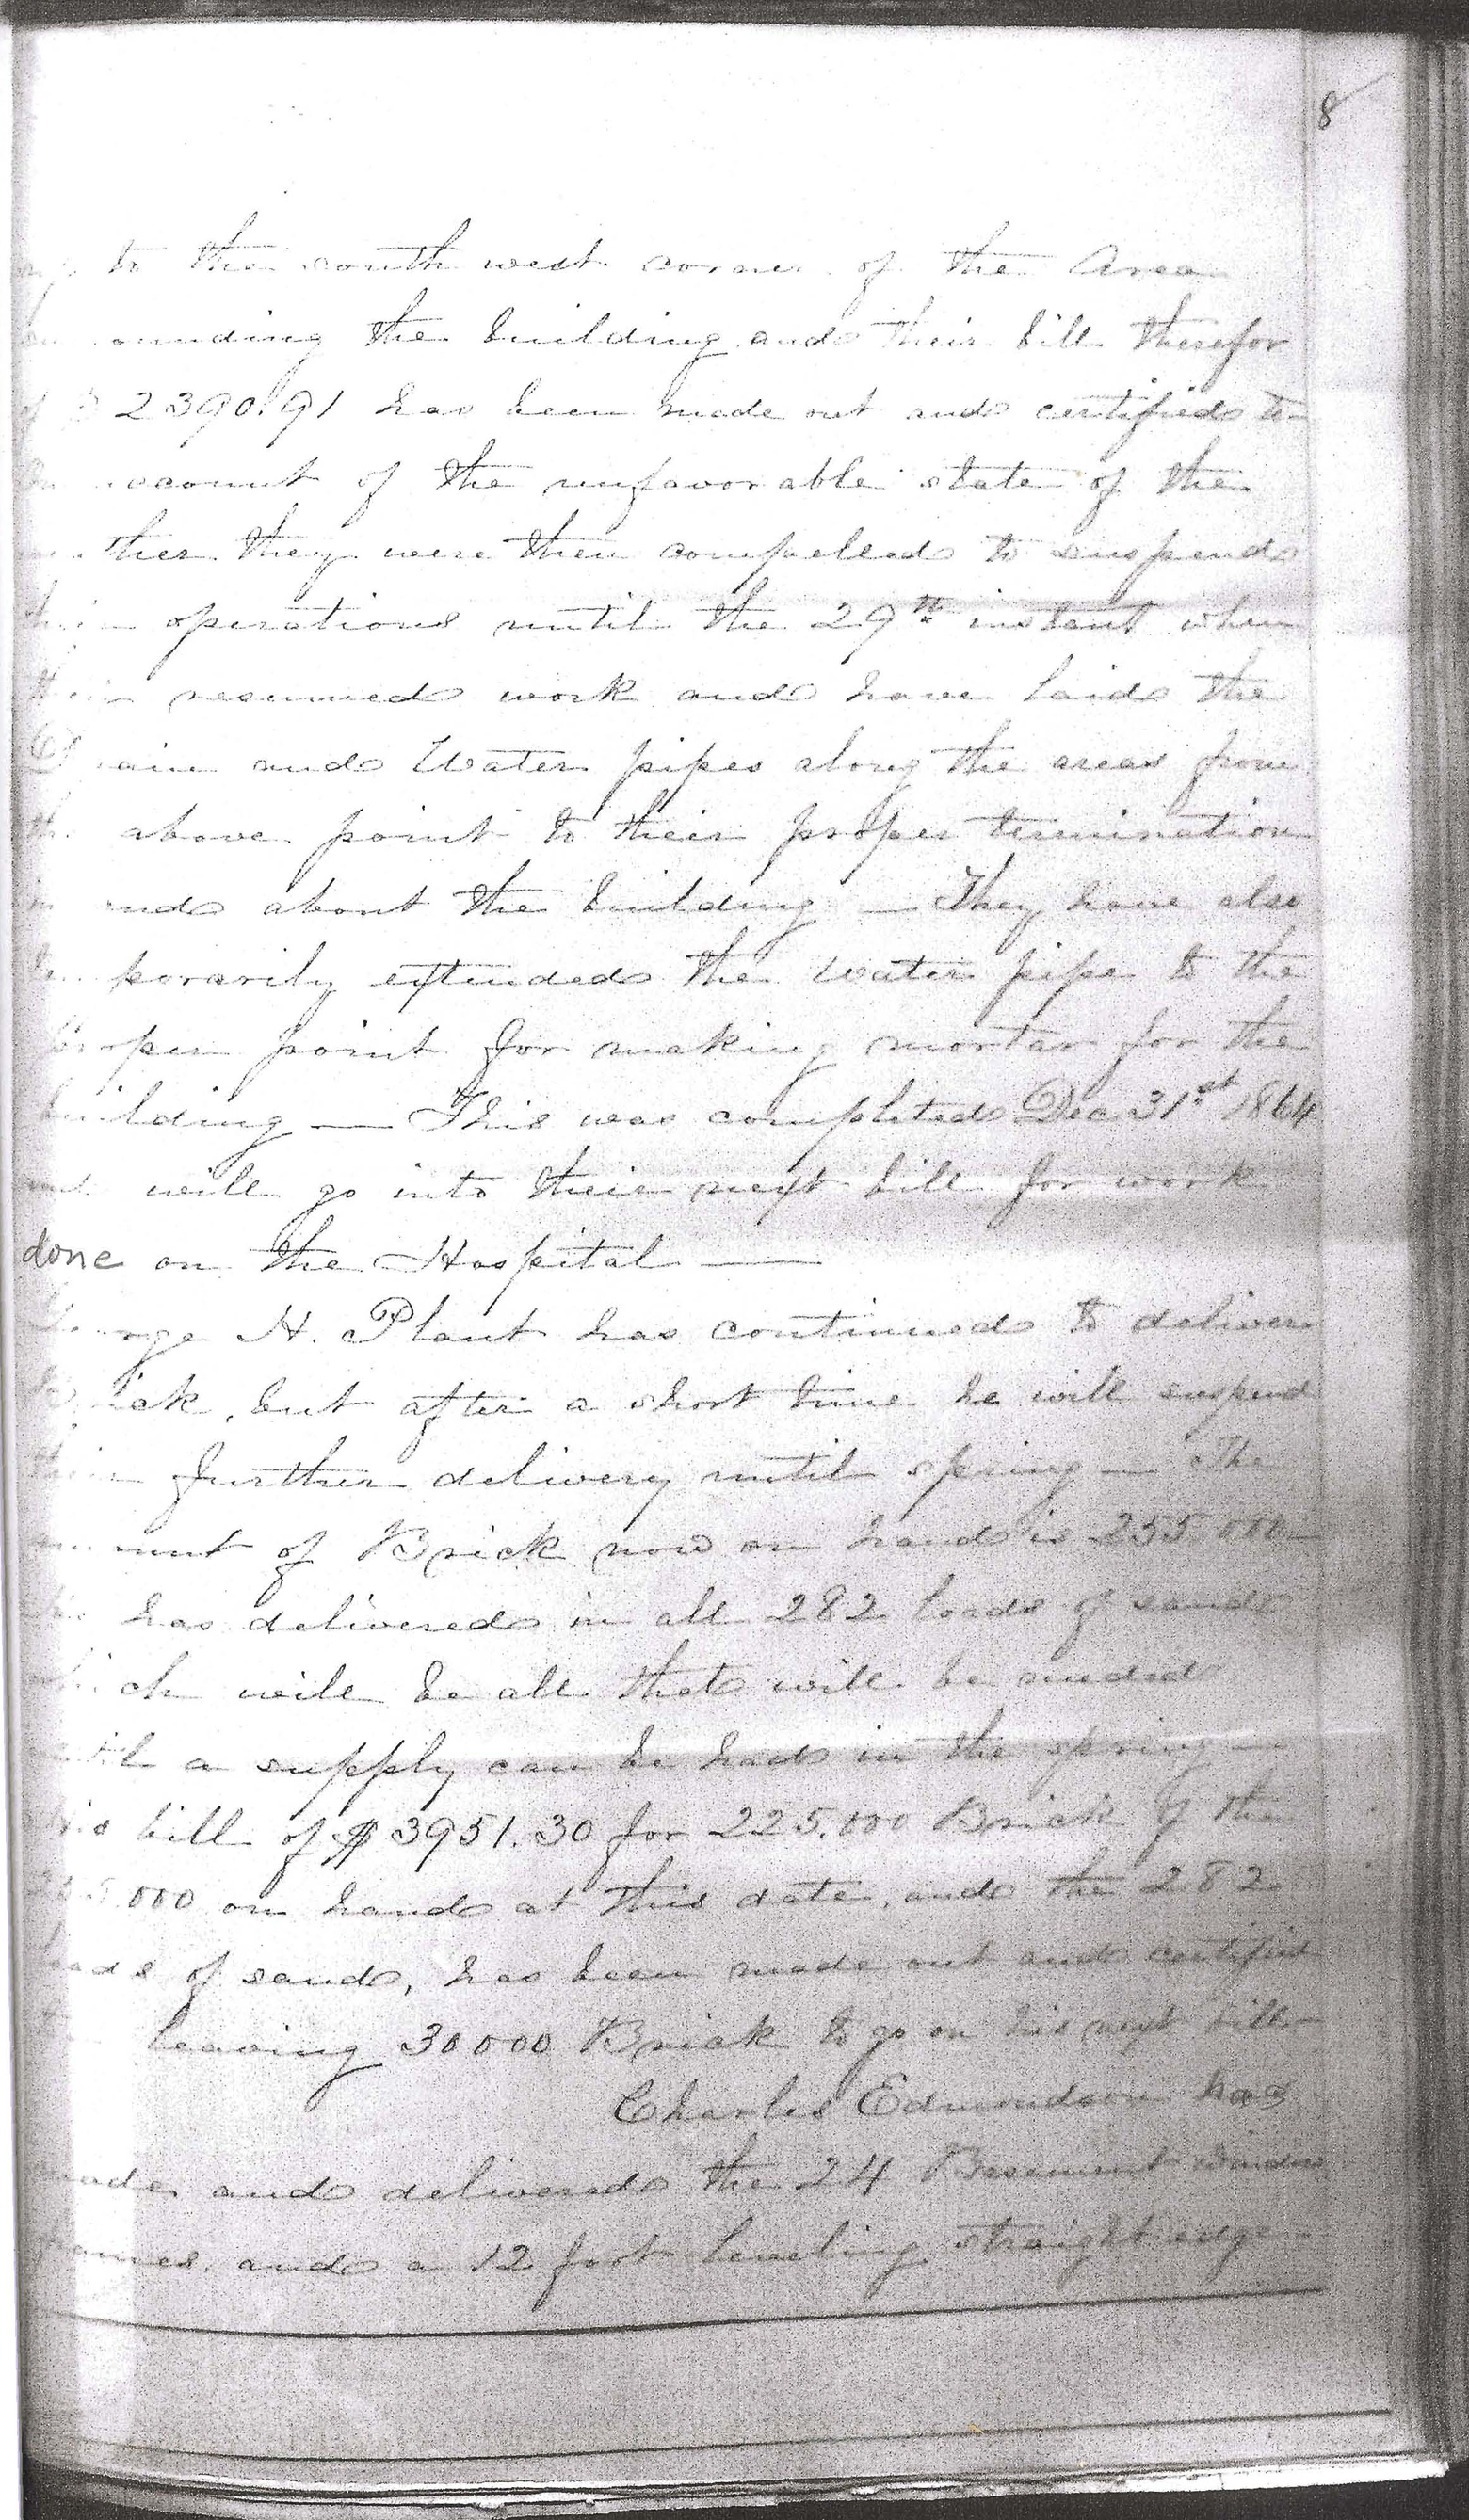 8
to the south west corner of the Area
ounding the building and their bill therefor
of $ 2390.91 has been made out and certified to
account of the unfavorable state of the
ther they were then compelled to suspend
operations until the 29th instant when
resumed work and have laid the
ain and Water pipes along the areas from
the above point to their proper termination
in and about the building — They have also
porarily extended the Water pipe to the
proper point for making mortar for the
building — This was completed Dec 31st 1864
and will go into their next bill for work
done on the Hospital —
George H. Plant has continued to deliver
Brick, but after a short time he will suspend
further delivery until spring — The
amount of Brick now on hand is 255 000
has delivered in all 282 loads of sand
which will be all that will be needed
until a supply can be had in the spring —
his bill of $ 3951.30 for 225.000 Brick of the
255.000 on hand at this date, and the 282
loads of sand, has been made out and certified
leaving 30000 Brick to go on his next bill —
Charles Edmondson has
made and delivered the 24 Basement window
frames, and a 12 foot leveling straight edge —